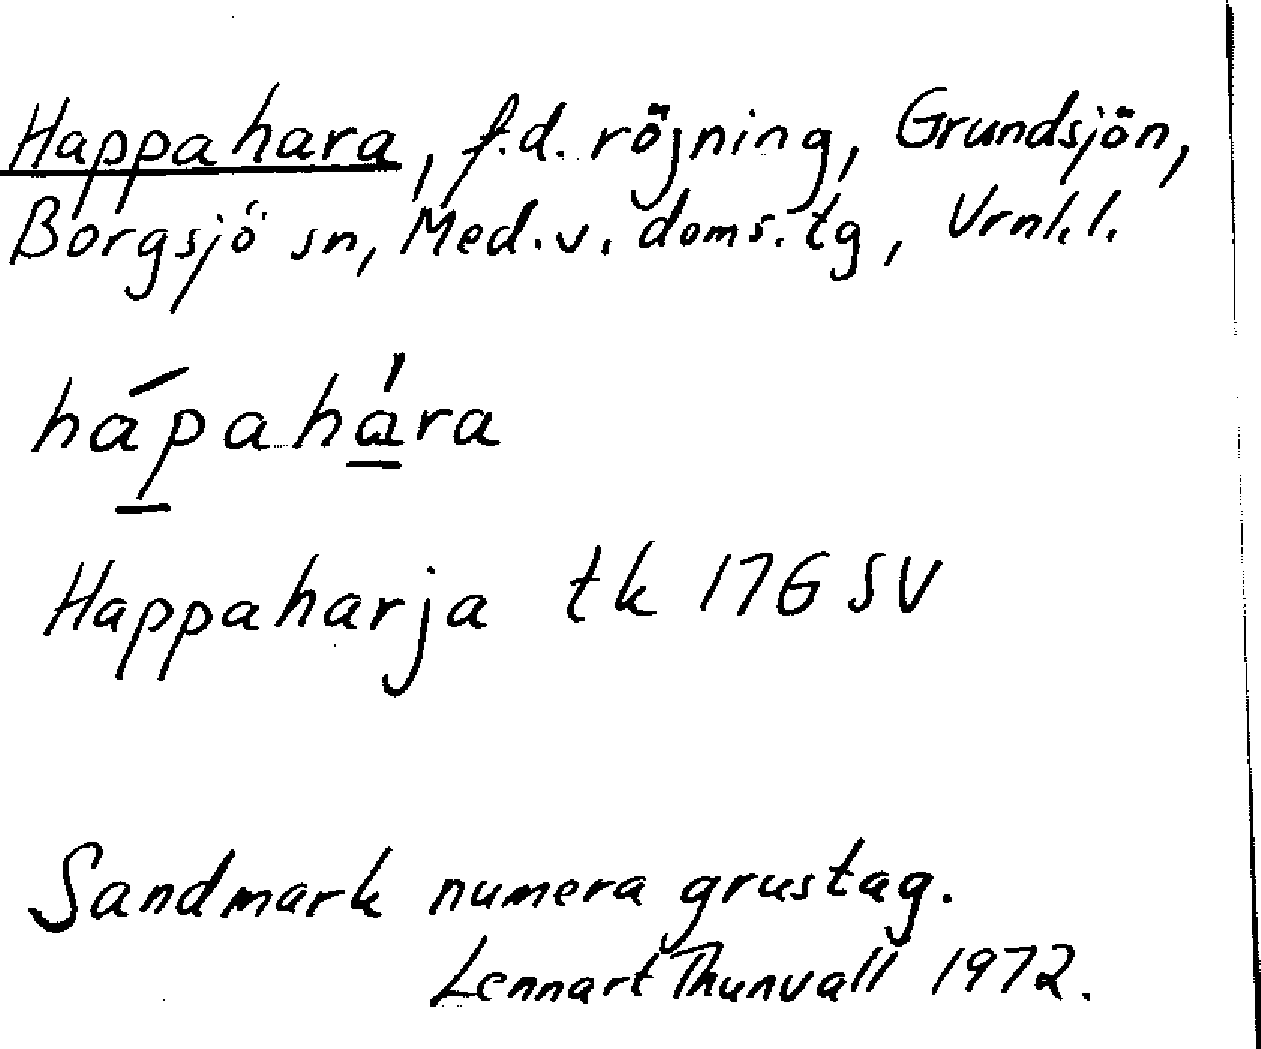 Happahara, f.d. röjning, Grundsjön,
Borgsjö sn, Med. v. doms. tg, Vrnl. l.
hápahára
Happaharja tk 17G SV
Sandmark numera grustag.
Lennart Thunvall 1972.